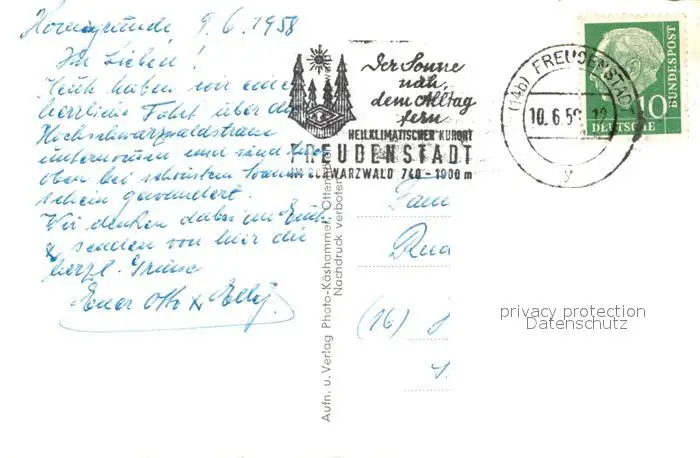 Hornisgrinde 9.6.1958
Ihr Lieben!
Heute haben wir eine
herrliche Fahrt über die
Hochschwarzwaldstrasse
unternommen und sind hier
oben bei schönstem Sonnen
schein gewandert.
Wir denken dabei an Euch
& senden von hier die
herzl. Grüsse
Euer Otto & Elly.
Der Sonne
nah,
dem Alltag
fern
HEILKLIMATISCHER KURORT
FREUDENSTADT
IM SCHWARZWALD 740 - 1000 m
(14b) FREUDENSTADT
10.6.58
y
10
DEUTSCHE
BUNDESPOST
Aufn. u. Verlag Photo-Käshammer,
Nachdruck verboten
Fam
Rud
(16)
privacy protection
Datenschutz